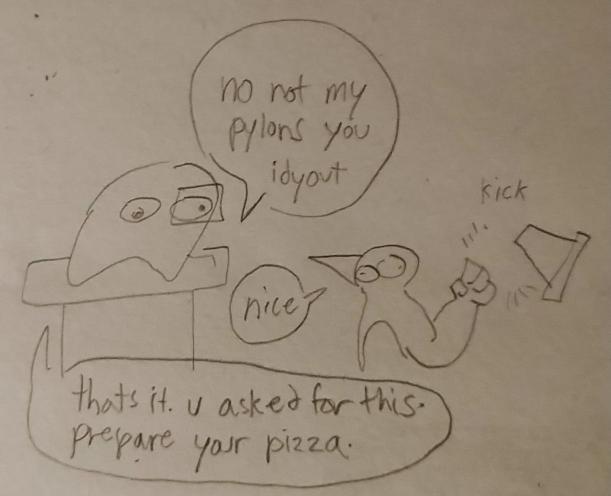 no not my
pylons you
idyout
kick
nice
thats it. u asked for this.
prepare your pizza.